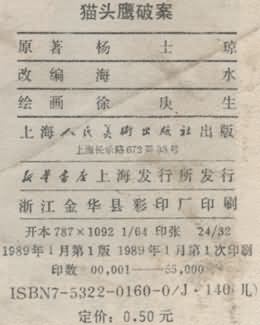 猫头鹰破案
原著 杨士琼
改编 海水
绘画 徐庚生
上海人民美術出版社出版
上海长乐路672弄33号
新华书店上海发行所发行
浙江金华县彩印厂印刷
开本 787×1092 1/64 印张 24/32
1989年1月第1版 1989年1月第1次印刷
印数 00,001—55,000
ISBN7-5322-0160-0/J·140(儿)
定价: 0.50元